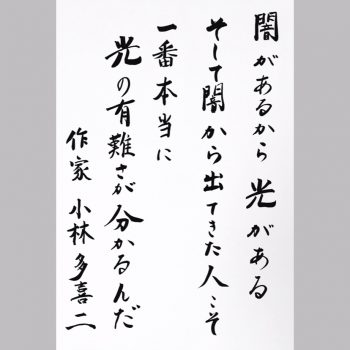 闇があるから光がある
そして闇から出てきた人こそ
一番本当に
光の有難さが分かるんだ
作家 小林多喜二